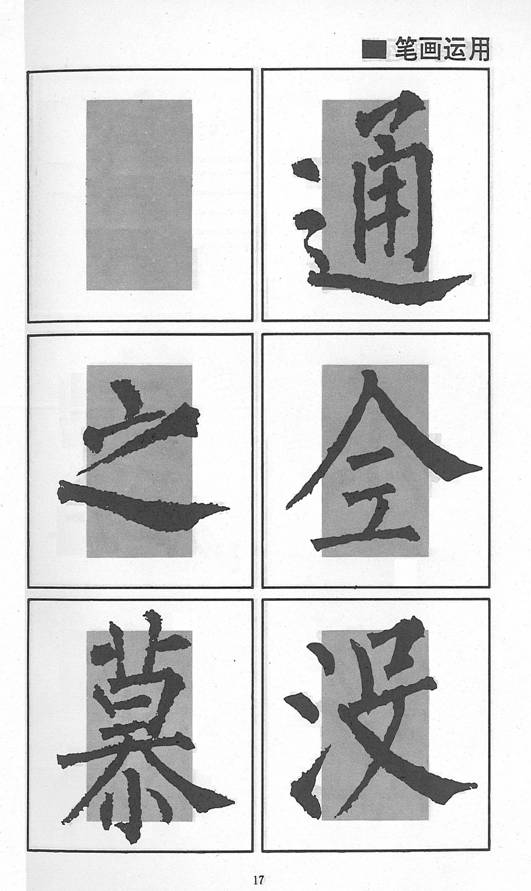 ■ 笔画运用
通
之 全
慕 没
17